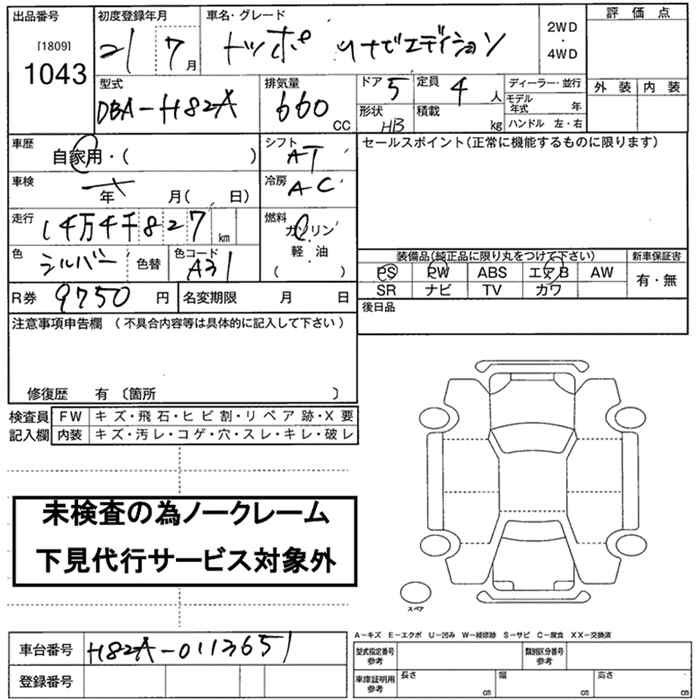 出品番号
[1809]
1043
初度登録年月
21 7 月
車名・グレード
トッポ ナビエディション
2WD
・
4WD
評価点
外装 内装
型式
DBA-H82A
排気量
660 CC
ドア 5
形状 HB
定員 4 人
積載 kg
ディーラー・並行
モデル年式 年
ハンドル 左・右
車歴
自家用・( )
シフト
AT
セールスポイント(正常に機能するものに限ります)
車検
年 月( . 日)
冷房
AC
走行
14万4千827 km
燃料
ガソリン
軽・油
( )
色
シルバー 色替
色コード
A31
装備品(純正品に限り丸をつけて下さい)
PS PW ABS エアB AW
SR ナビ TV カワ
新車保証書
有・無
R券 9750 円
名変期限 月 日
後日品
注意事項申告欄 (不具合内容等は具体的に記入して下さい)
修復歴 有 〔箇所 〕
検査員記入欄
FW キズ・飛石・ヒビ割・リペア跡・X要
内装 キズ・汚レ・コゲ・穴・スレ・キレ・破レ
未検査の為ノークレーム
下見代行サービス対象外
スペア
A-キズ E-エクボ U-凹み W-補修跡 S-サビ C-腐食 XX-交換済
車台番号 H82A-0113651
登録番号
型式指定番号参考
類別区分番号参考
車庫証明用参考
長さ cm
幅 cm
高さ cm